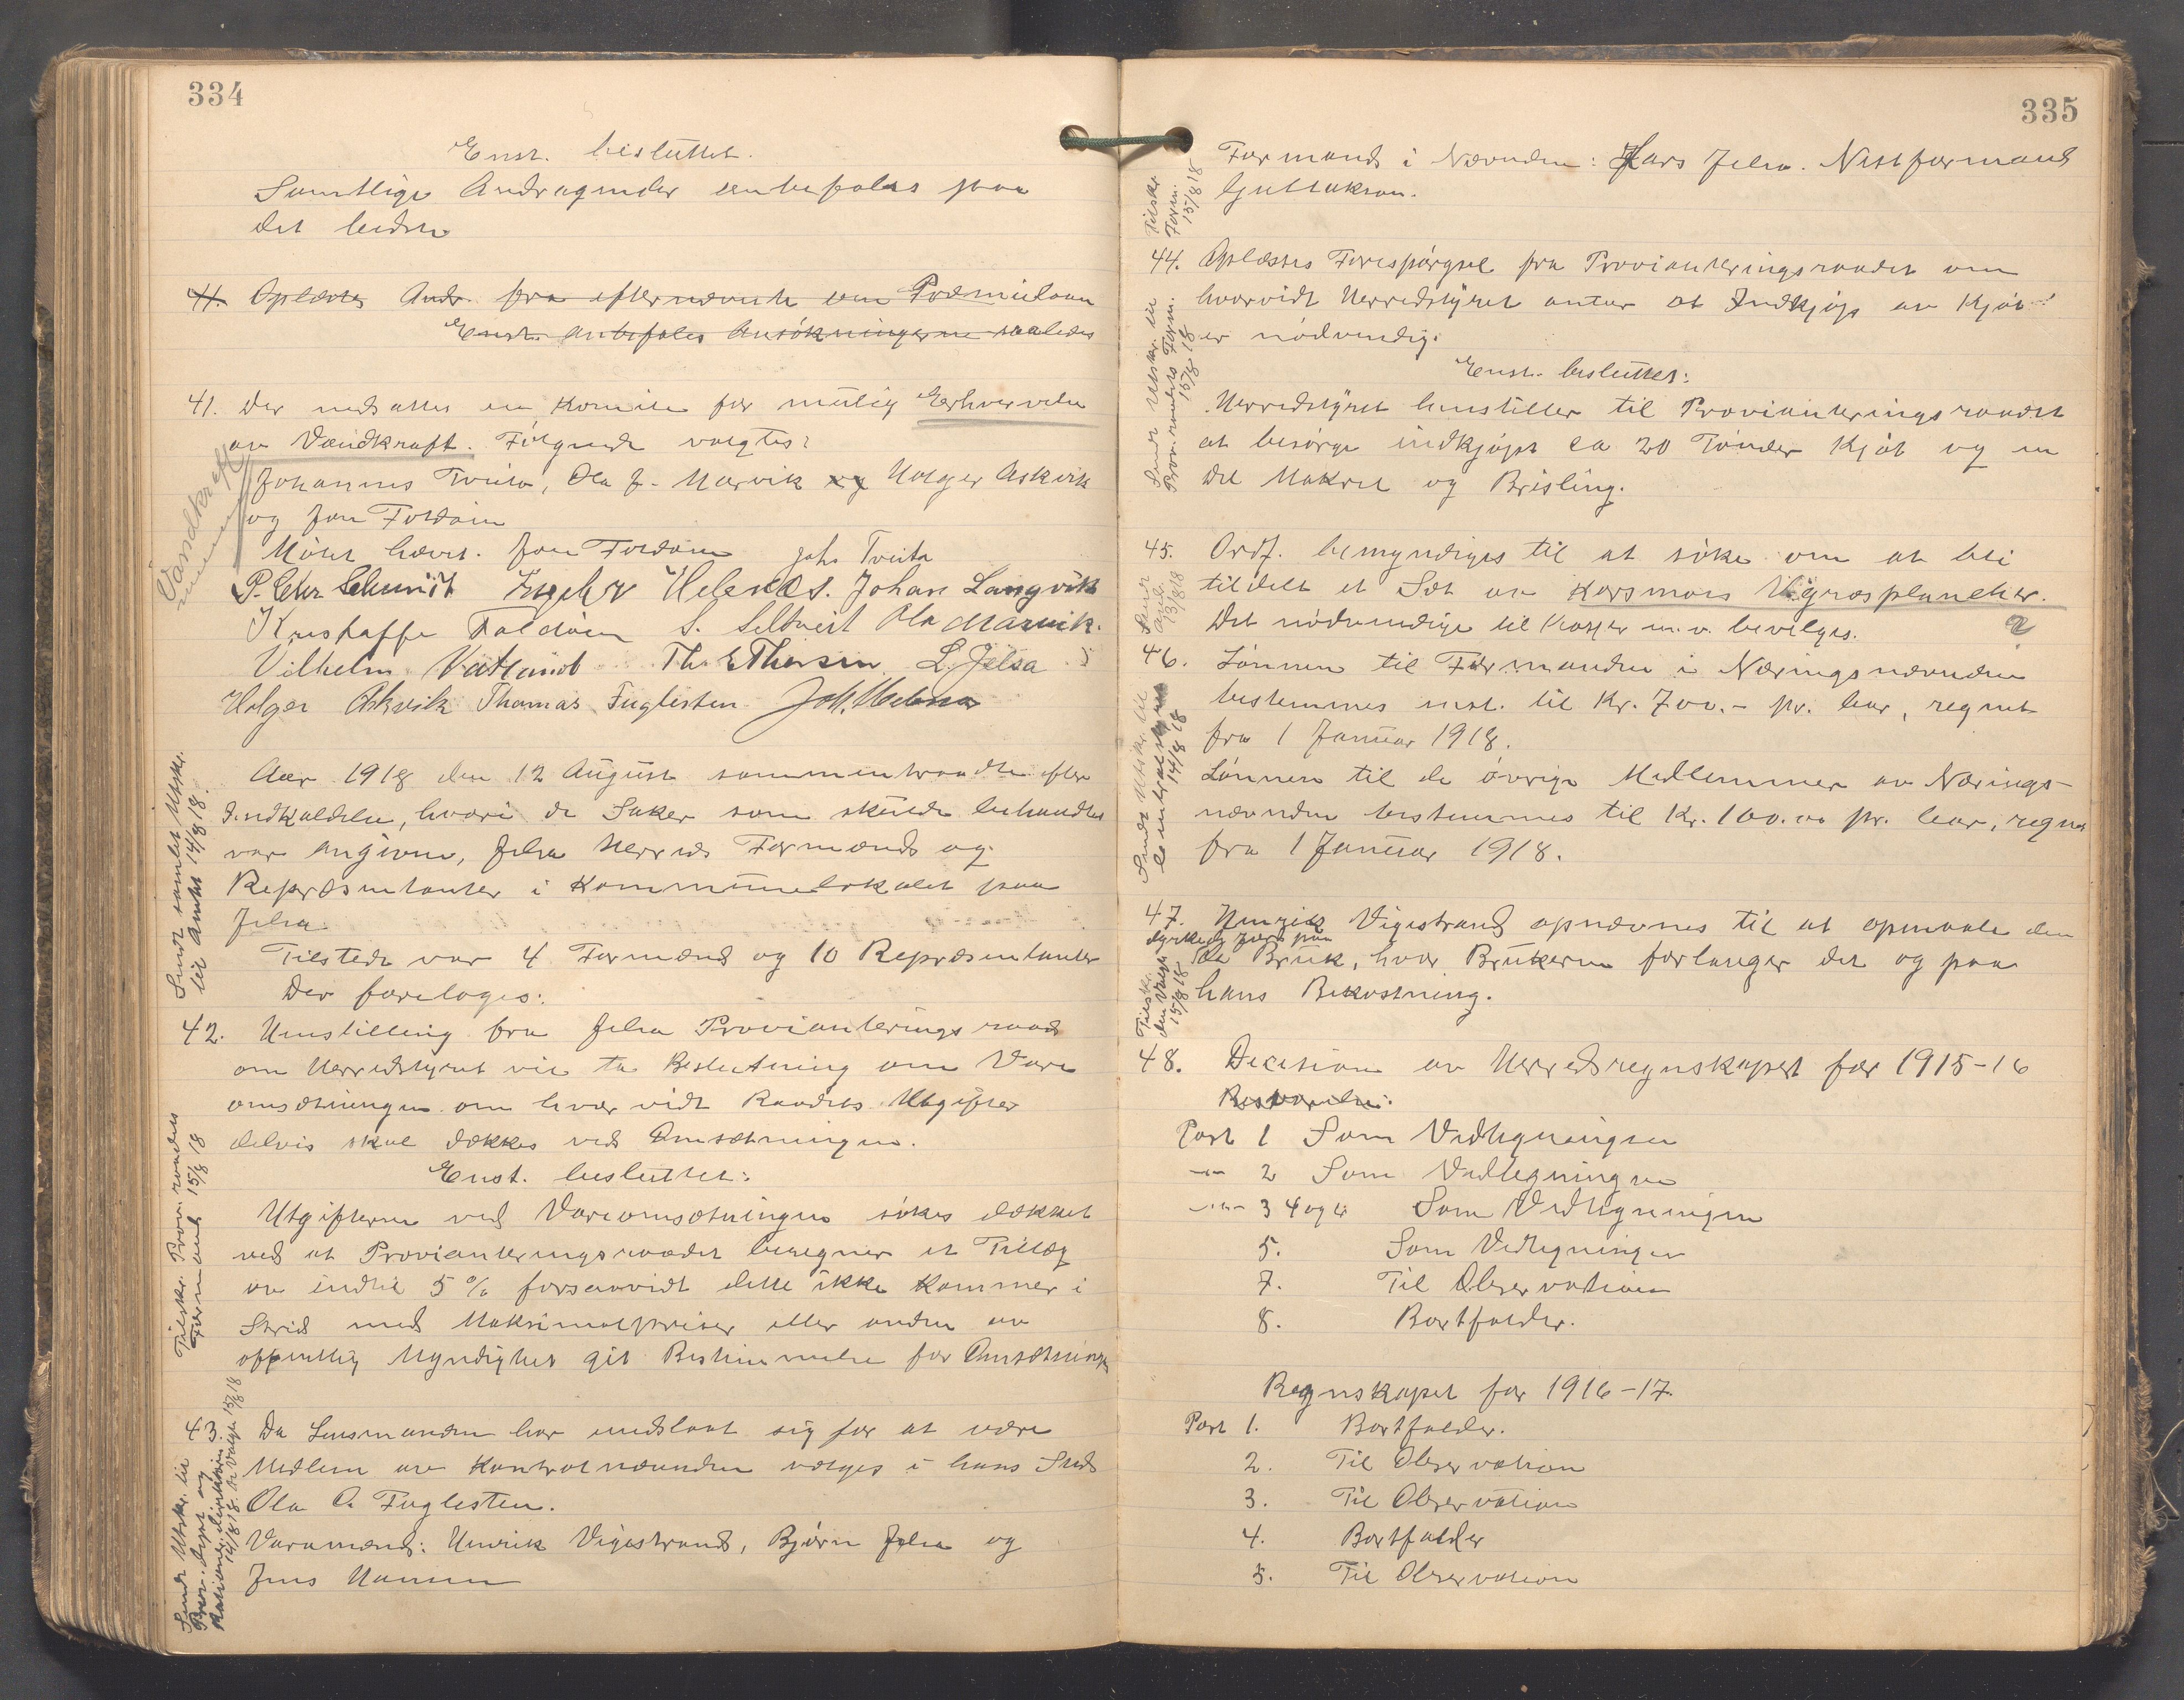 334
Enst. besluttet.
Samtlige Andragender anbefales paa
det bedste
41. Oplæstes Andr. fra efternævnte om Præmielaan
Enst. anbefales Ansökningerne saaledes
41. Der nedsattes en Komite for mulig Erhvervelse
av Vandkraft. Fölgende valgtes:
Johannes Tveita, Ola J. Marvik og Holger Askvik
og Jon Foldöen
Vandkraft
Mötet hævet. Jon Foldöen Johs Tveita
P. Chr Schmidt Helenæs. Johan Langvik
Kristoffer Foldöen S. Seltveit Ola Marvik.
Vilhelm Vatland Th. E Thorsen L. Jelsa
Holger Askvik Thomas Fuglesten
Aar 1918 den 12 August sammentraadte efter
Indkaldelse, hvori de Saker som skulde behandles
var angivne, Jelsa Herreds Formænd og
Repræsentanter i Kommunelokalet paa
Jelsa.
Sendt samlet Utskr.
til Amtet 14/8 18.
Tilstede var 4 Formænd og 10 Repræsentanter
Der foretoges:
42. Henstilling fra Jelsa Provianteringsraad
om Herredstyret vil ta Beslutning om Vare
omsætningen om hvorvidt Raadets Utgifter
delvis skal dækkes ved Omsætningen.
Enst. besluttet:
Utgifterne ved Vareomsætningen sökes dækket
ved at Provianteringsraadet beregner et Tillæg
av indtil 5 % forsaavidt dette ikke kommer i
Strid med Maksimalpriser eller anden av
offentlig Myndighet git Bestemmelse for Omsætningen
Tilskr. Provi. raadets
Formand 15/8 18
43. Da Lensmanden har undslaat sig for at være
Medlem av Kontrolnævnden vælges i hans Sted
Ola O. Fuglesten.
Varamænd: Henrik Vigestrand, Björn Jelsa og
Jens Hansen
Sendt Utskr. til
Prov. dept og
Rasionr. direktören
14/8 18. de valgte 15/8 18
335
Formand i Nævnden: Lars Jelsa. Nestformand
Guttakson.
Tilskr.
Form.
15/8 18
44. Oplæstes Forespörgsel fra Provianteringsraadet om
hvorvidt Herredstyret antar at Indkjöp av Kjöt
er nödvendig.
Enst. besluttet:
Herredstyret henstiller til Provianteringsraadet
at besörge indkjöpt ca 20 Tönder Kjöt og en
Del Makrel og Brisling.
Sendt Utskr. til
Prov. raadets Form.
15/8 18
45. Ordf. bemyndiges til at söke om at bli
tildelt et Sæt av Korsmos Ugræsplancher.
Det nödvendige til Kasser m.v. bevilges. 2
13/8 18
46. Lönnen til Formanden i Næringsnævnden
bestemmes enst. til Kr. 700.- pr. aar, regnet
fra 1 Januar 1918.
Lönnen til de övrige Medlemmer av Nærings-
nævnden bestemmes til Kr. 100.00 pr. aar, regnet
fra 1 Januar 1918.
Sendt Utskr. til
14/8 18
47. Henrik Vigestrand opnævnes til at opmaale den
dyrkede Jord paa
de Bruk, hvor Brukeren forlanger det og paa
hans Bekostning.
Tilskr.
den valgte
15/8 18
48. Decision av Herredsregnskapet for 1915-16
Besvarelse:
Post 1 Som Vedtegningen
-"- 2 Som Vedtegningen
-"- 3 4 og 6 Som Vedtegningen
5. Som Vedtegningen
7. Til Observation
8. Bortfalder.
Regnskapet for 1916-17.
Post 1. Bortfalder.
2. Til Observation
3. Til Observation
4. Bortfalder
5. Til Observation